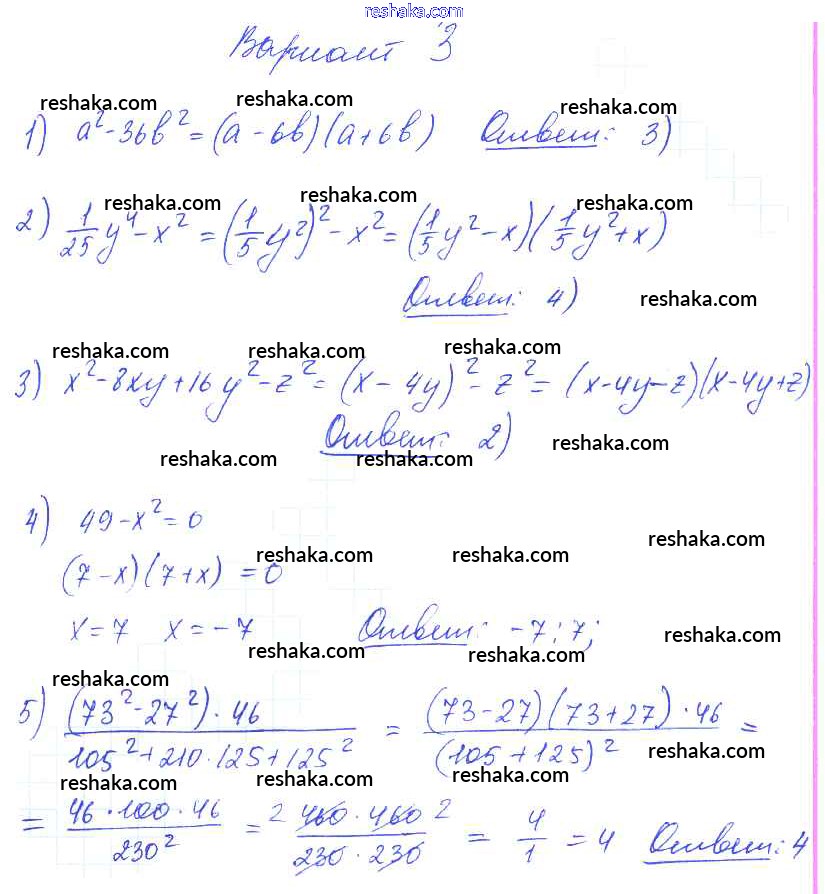 reshaka.com
Вариант 3
reshaka.com reshaka.com reshaka.com
1) a² - 36b² = (a - 6b)(a + 6b) Ответ: 3)
reshaka.com reshaka.com reshaka.com
2) 1/25 y⁴ - x² = (1/5 y²)² - x² = (1/5 y² - x)(1/5 y² + x)
Ответ: 4) reshaka.com
reshaka.com reshaka.com reshaka.com
3) x² - 8xy + 16y² - z² = (x - 4y)² - z² = (x - 4y - z)(x - 4y + z)
Ответ: 2) reshaka.com
reshaka.com reshaka.com
4) 49 - x² = 0
reshaka.com reshaka.com reshaka.com
(7 - x)(7 + x) = 0
x = 7 x = -7 Ответ: -7; 7;
reshaka.com reshaka.com reshaka.com
reshaka.com
5) (73² - 27²) · 46 / 105² + 210 · 125 + 125² = (73 - 27)(73 + 27) · 46 / (105 + 125)² =
reshaka.com
reshaka.com reshaka.com reshaka.com
= 46 · 100 · 46 / 230² = 2 460 · 460 2 / 230 · 230 = 4/1 = 4 Ответ: 4